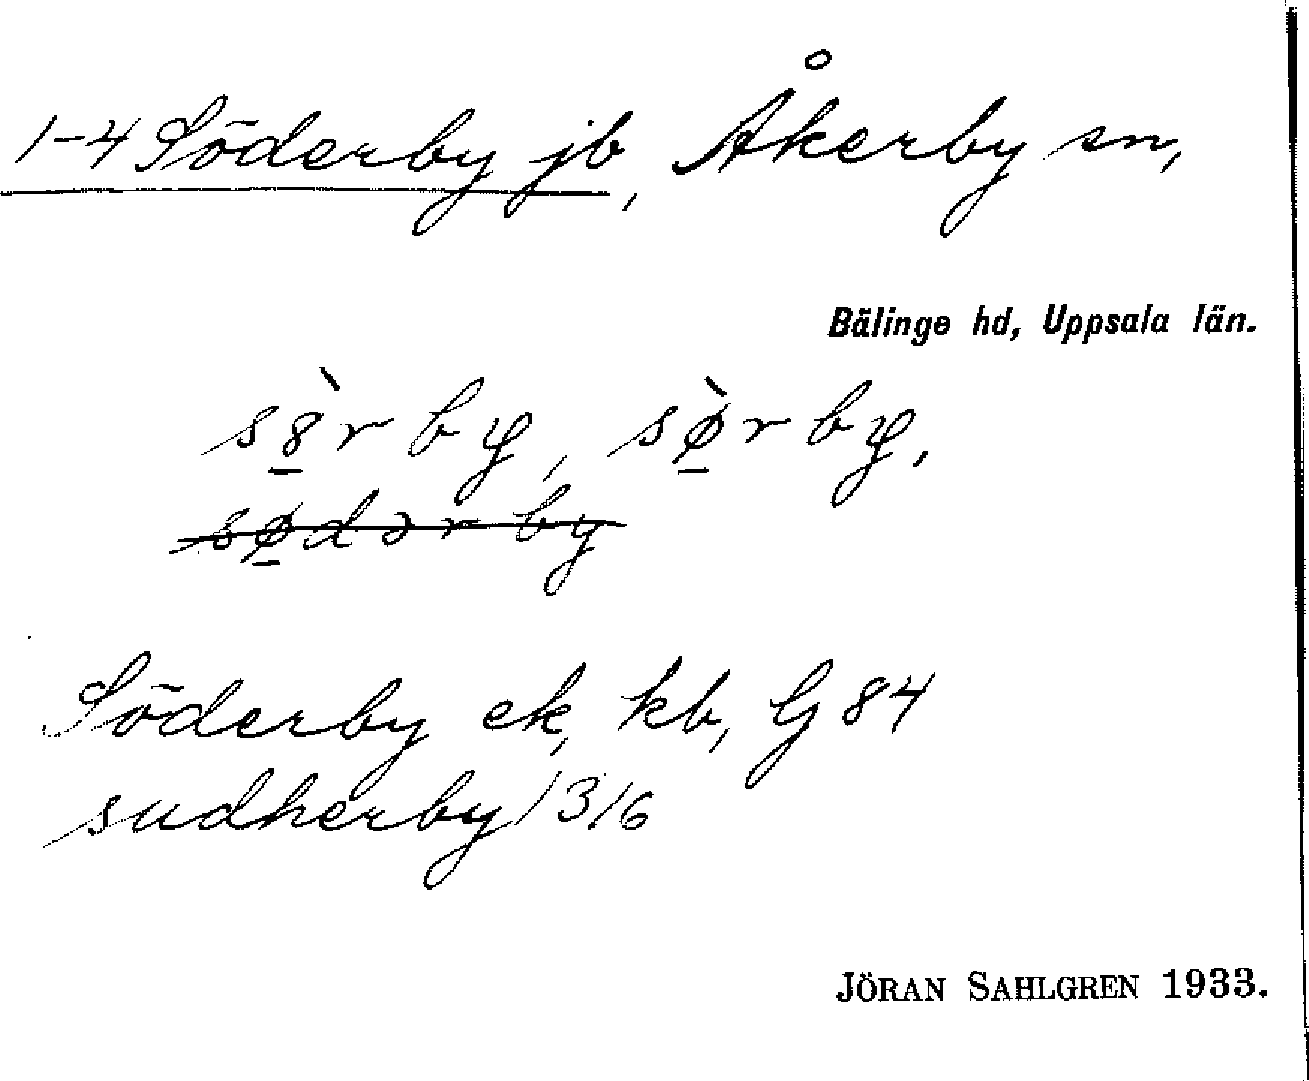 1-4 Söderby jb, Åkerby sn,
Bälinge hd, Uppsala län.
s8̲̀r by, sø̲̀r by,
sø̲dər by
Söderby ek, kb, G 84
sudherby 1316
JÖRAN SAHLGREN 1933.